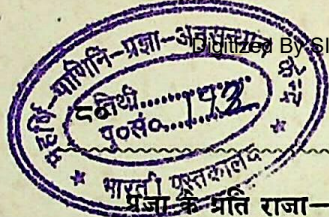 महर्षि-पाणिनि-प्रज्ञा-अनुसन्धान
Digitized By
तिथी..............
पु०सं०....192
भारती पुस्तकालय
प्रजा के प्रति राजा—